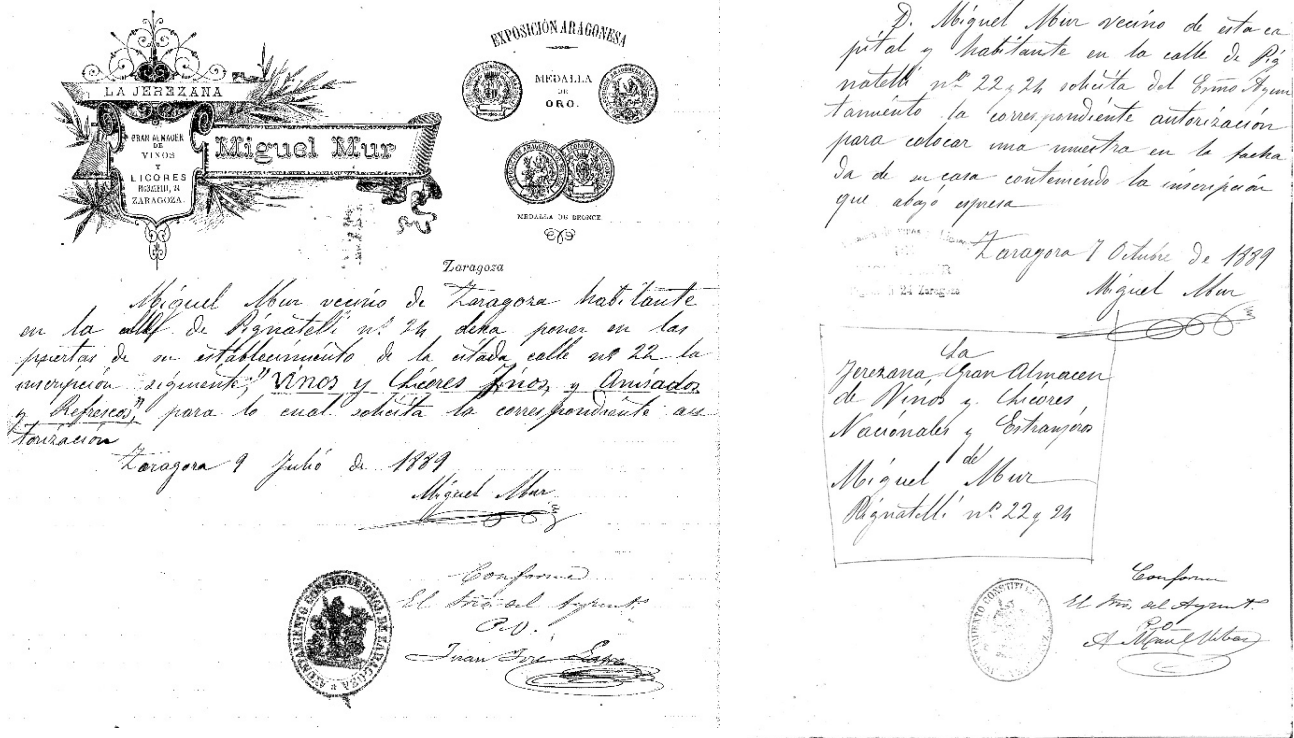 LA JEREZANA
GRAN ALMACEN
DE
VINOS
Y
LICORES
ZARAGOZA.
Miguel Mur
EXPOSICIÓN ARAGONESA
MEDALLA
DE
ORO.
MEDALLA DE BRONCE
Zaragoza
Miguel Mur vecino de Zaragoza habitante
en la calle de Pignatelli nº 24 desea poner en las
puertas de su establecimiento de la citada calle nº 22 la
inscripción siguiente; "Vinos y Licores finos, y Anisados
y Refrescos", para lo cual solicita la correspondiente au
torización
Zaragoza 9 Julio de 1889
Miguel Mur
Conforme
El Srio del Ayunt.
P.O.
Juan José
AYUNTAMIENTO CONSTITUCIONAL DE ZARAGOZA
D. Miguel Mur vecino de esta ca
pital y habitante en la calle de Pig
natelli nº 22 y 24 solicita del Exmo Ayun
tamiento la correspondiente autorización
para colocar una muestra en la facha
da de su casa conteniendo la inscripción
que abajo espresa
24 Zaragoza
Zaragoza 7 Octubre de 1889
Miguel Mur
La
Jerezana Gran Almacen
de Vinos y Licores
Nacionales y Estranjeros
de
Miguel Mur
Pignatelli nº 22 y 24
Conforme
El Srio. del Ayunt.
P.O.